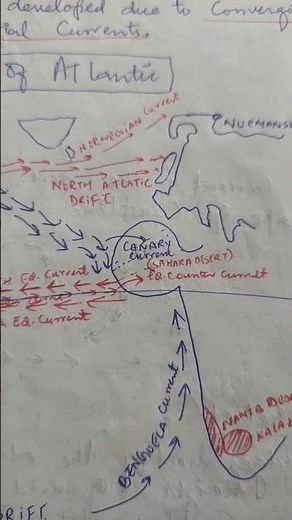 developed due to Converg
ial Currents.
of Atlantic
NORWEGIAN Current.
MURMANS
NORTH ATLATIC
DRIFT
CANARY
Current
(SAHARA DESERT)
H EQ. Current
EQ. Counter Current
EQ. Current
BENGUELA Current
NAMIB DES
KALA
DRIFT